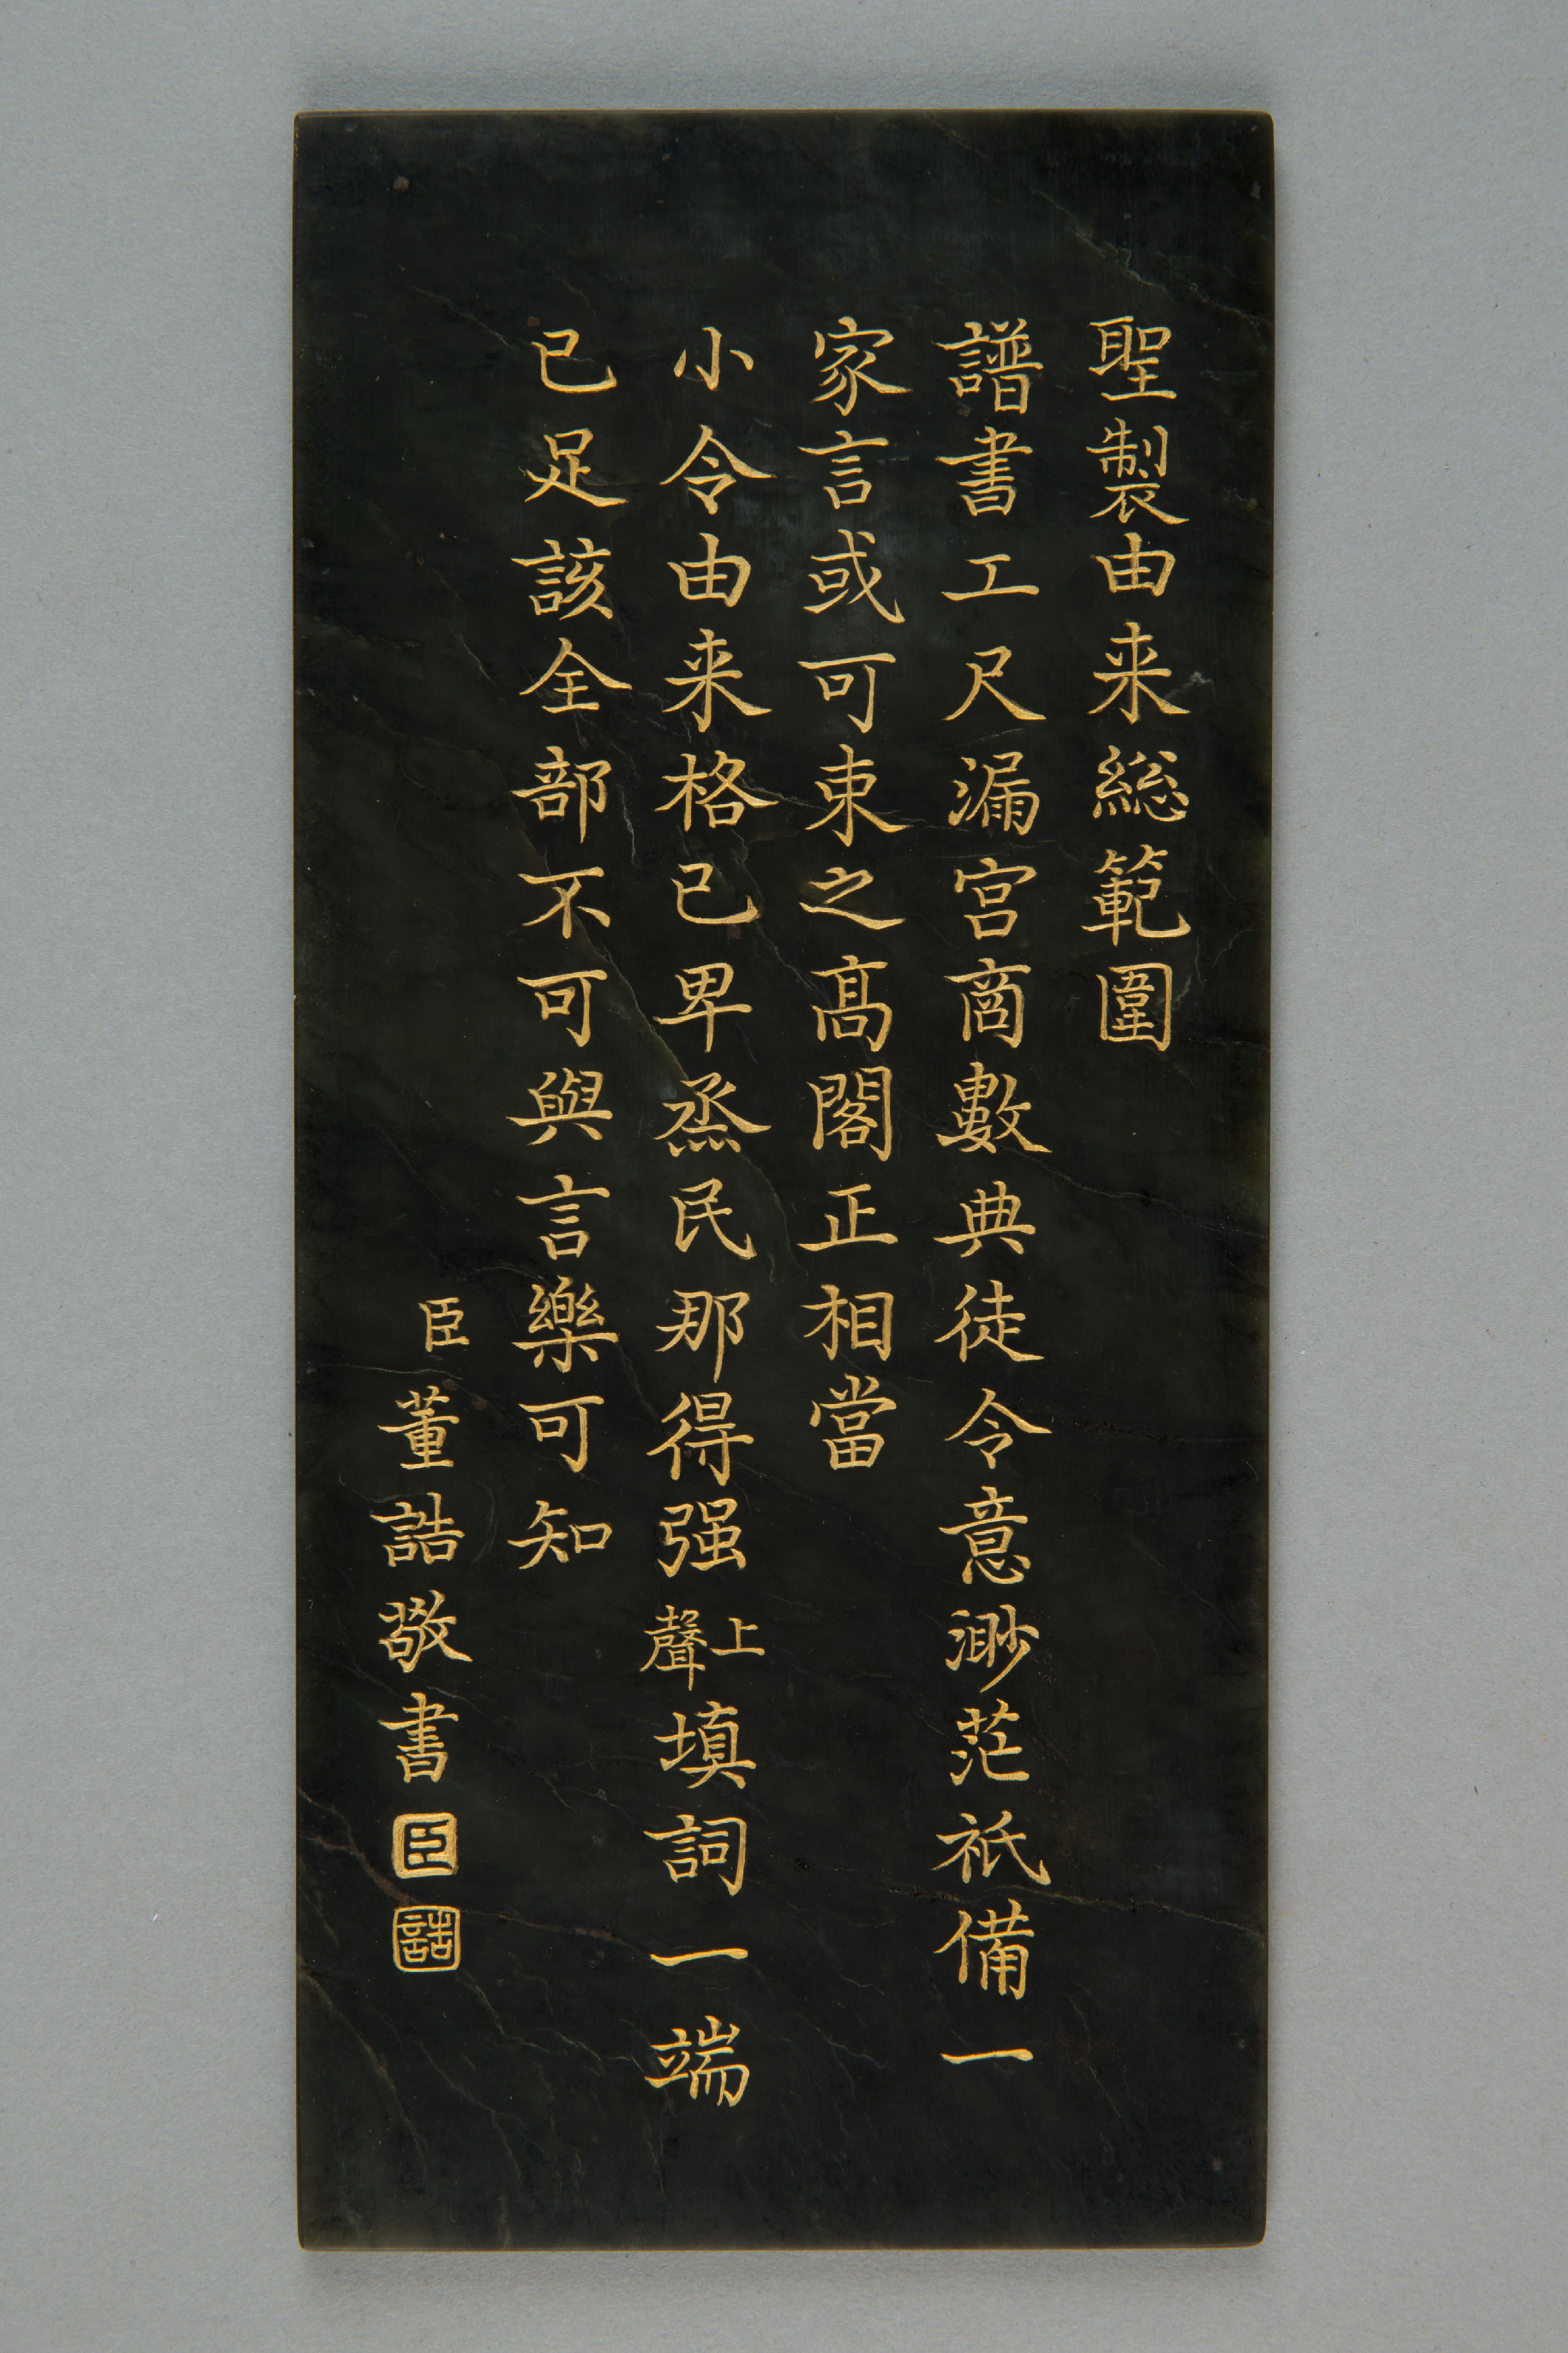 聖製由来総範圍
譜書工尺漏宫商數典徒令意渺茫祇備一
家言或可束之髙閣正相當
小令由来格已卑烝民那得强上聲填詞一端
已足該全部不可與言樂可知
臣董誥敬書
臣
誥